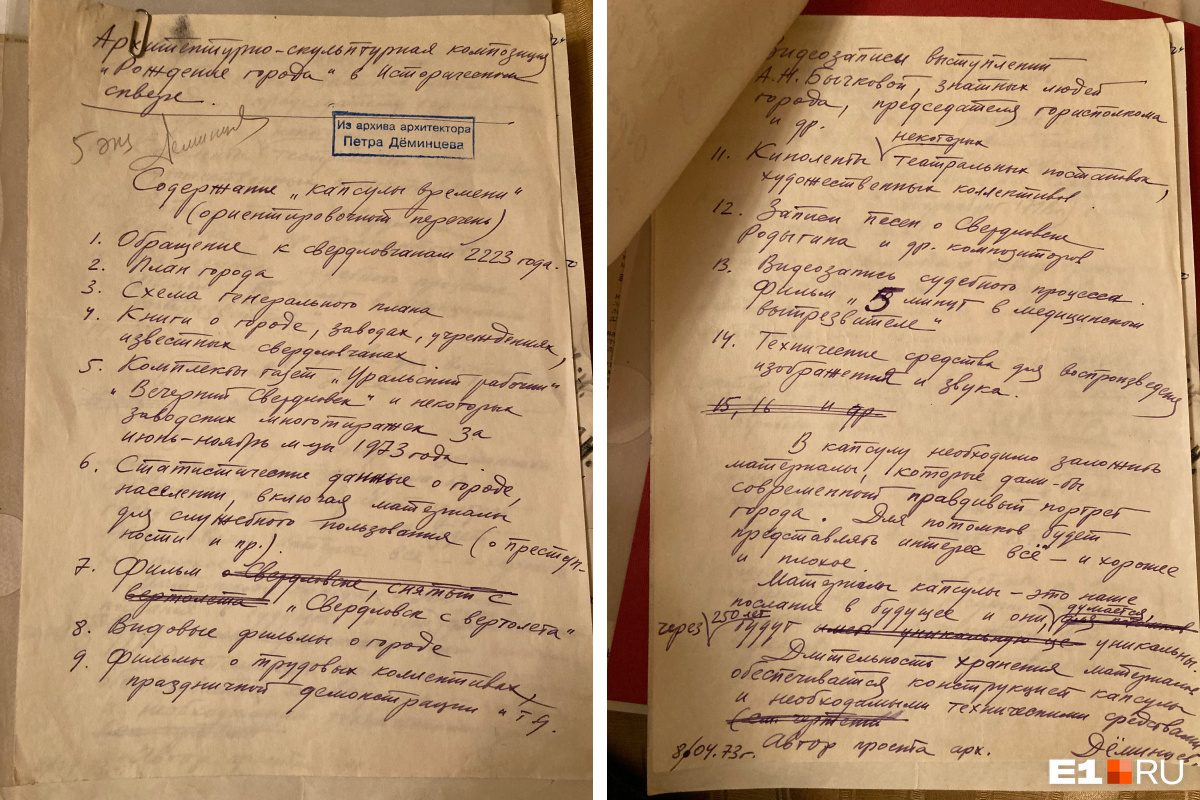 Архитектурно-скульптурная композиция
"Рождение города" в Историческом
сквере.
5 экз Деминцев
Из архива архитектора
Петра Дёминцева
Содержание "капсулы времени"
(ориентировочный перечень)
1. Обращение к свердловчанам 2223 года.
2. План города
3. Схема генерального плана
4. Книги о городе, заводах, учреждениях,
известных свердловчанах
5. Комплекты газет "Уральский рабочий"
"Вечерний Свердловск" и некоторых
заводских многотиражек за
июнь-ноябрь м-цы 1973 года.
6. Статистические данные о городе,
населении, включая материалы
для служебного пользования (о преступ-
ности и пр.).
7. Фильм о Свердловске, снятый с
вертолета, "Свердловск с вертолета"
8. Видовые фильмы о городе
9. Фильмы о трудовых коллективах,
праздничной демонстрации и т.д.
Видеозаписи выступлений
А.Н. Бычковой, знатных людей
города, председателя горисполкома
и др.
некоторых
11. Киноленты театральных постановок,
художественных коллективов.
12. Записи песен о Свердловске
Родыгина и др. композиторов
13. Видеозапись судебного процесса.
Фильм "5 минут в медицинском
вытрезвителе"
14. Технические средства для воспроизведения
изображения и звука.
15, 16 и др.
В капсулу необходимо заложить
материалы, которые дали-бы
современный правдивый портрет
города. Для потомков будет
представлять интерес всё – и хорошее
и плохое.
Материалы капсулы – это наше
послание в будущее и они, думается,
через 250 лет будут уникальны.
Длительность хранения материалов
обеспечивается конструкцией капсулы
и необходимыми техническими средствами
(см. чертежи
8/04.73г. Автор проекта арх. Дёминцев.
E1.RU